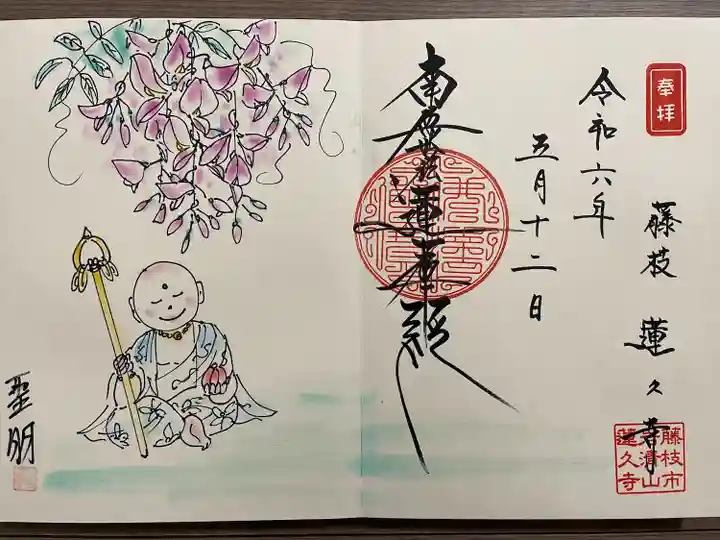 奉拝
令和六年
五月十二日
藤枝 蓮久寺
南無妙法蓮華経
藤枝市
清山
蓮久寺
聖明